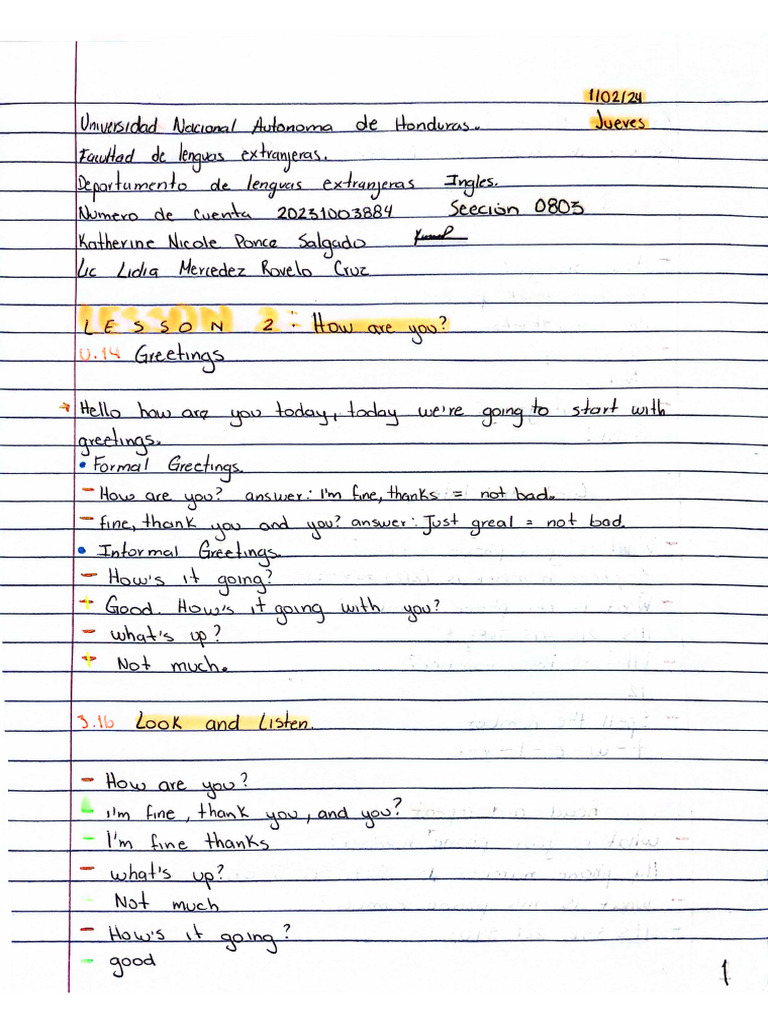 1/02/24
Universidad Nacional Autonoma de Honduras. Jueves
Facultad de lenguas extranjeras.
Departamento de lenguas extranjeras Ingles.
Numero de Cuenta 20231003884 Sección 0803
Katherine Nicole Ponce Salgado
Lic Lidia Mercedez Rovelo Cruz
LESSON 2: How are you?
0.14 Greetings
Hello how are you today, today we're going to start with
greetings.
• Formal Greetings.
- How are you? answer: I'm fine, thanks = not bad.
- fine, thank you and you? answer: Just greal = not bad.
• Informal Greetings.
- How's it going?
+ Good. How's it going with you?
- what's up?
+ Not much.
3.1b Look and Listen.
- How are you?
I'm fine, thank you, and you?
- I'm fine thanks
- what's up?
- Not much
- How's it going?
- good
1